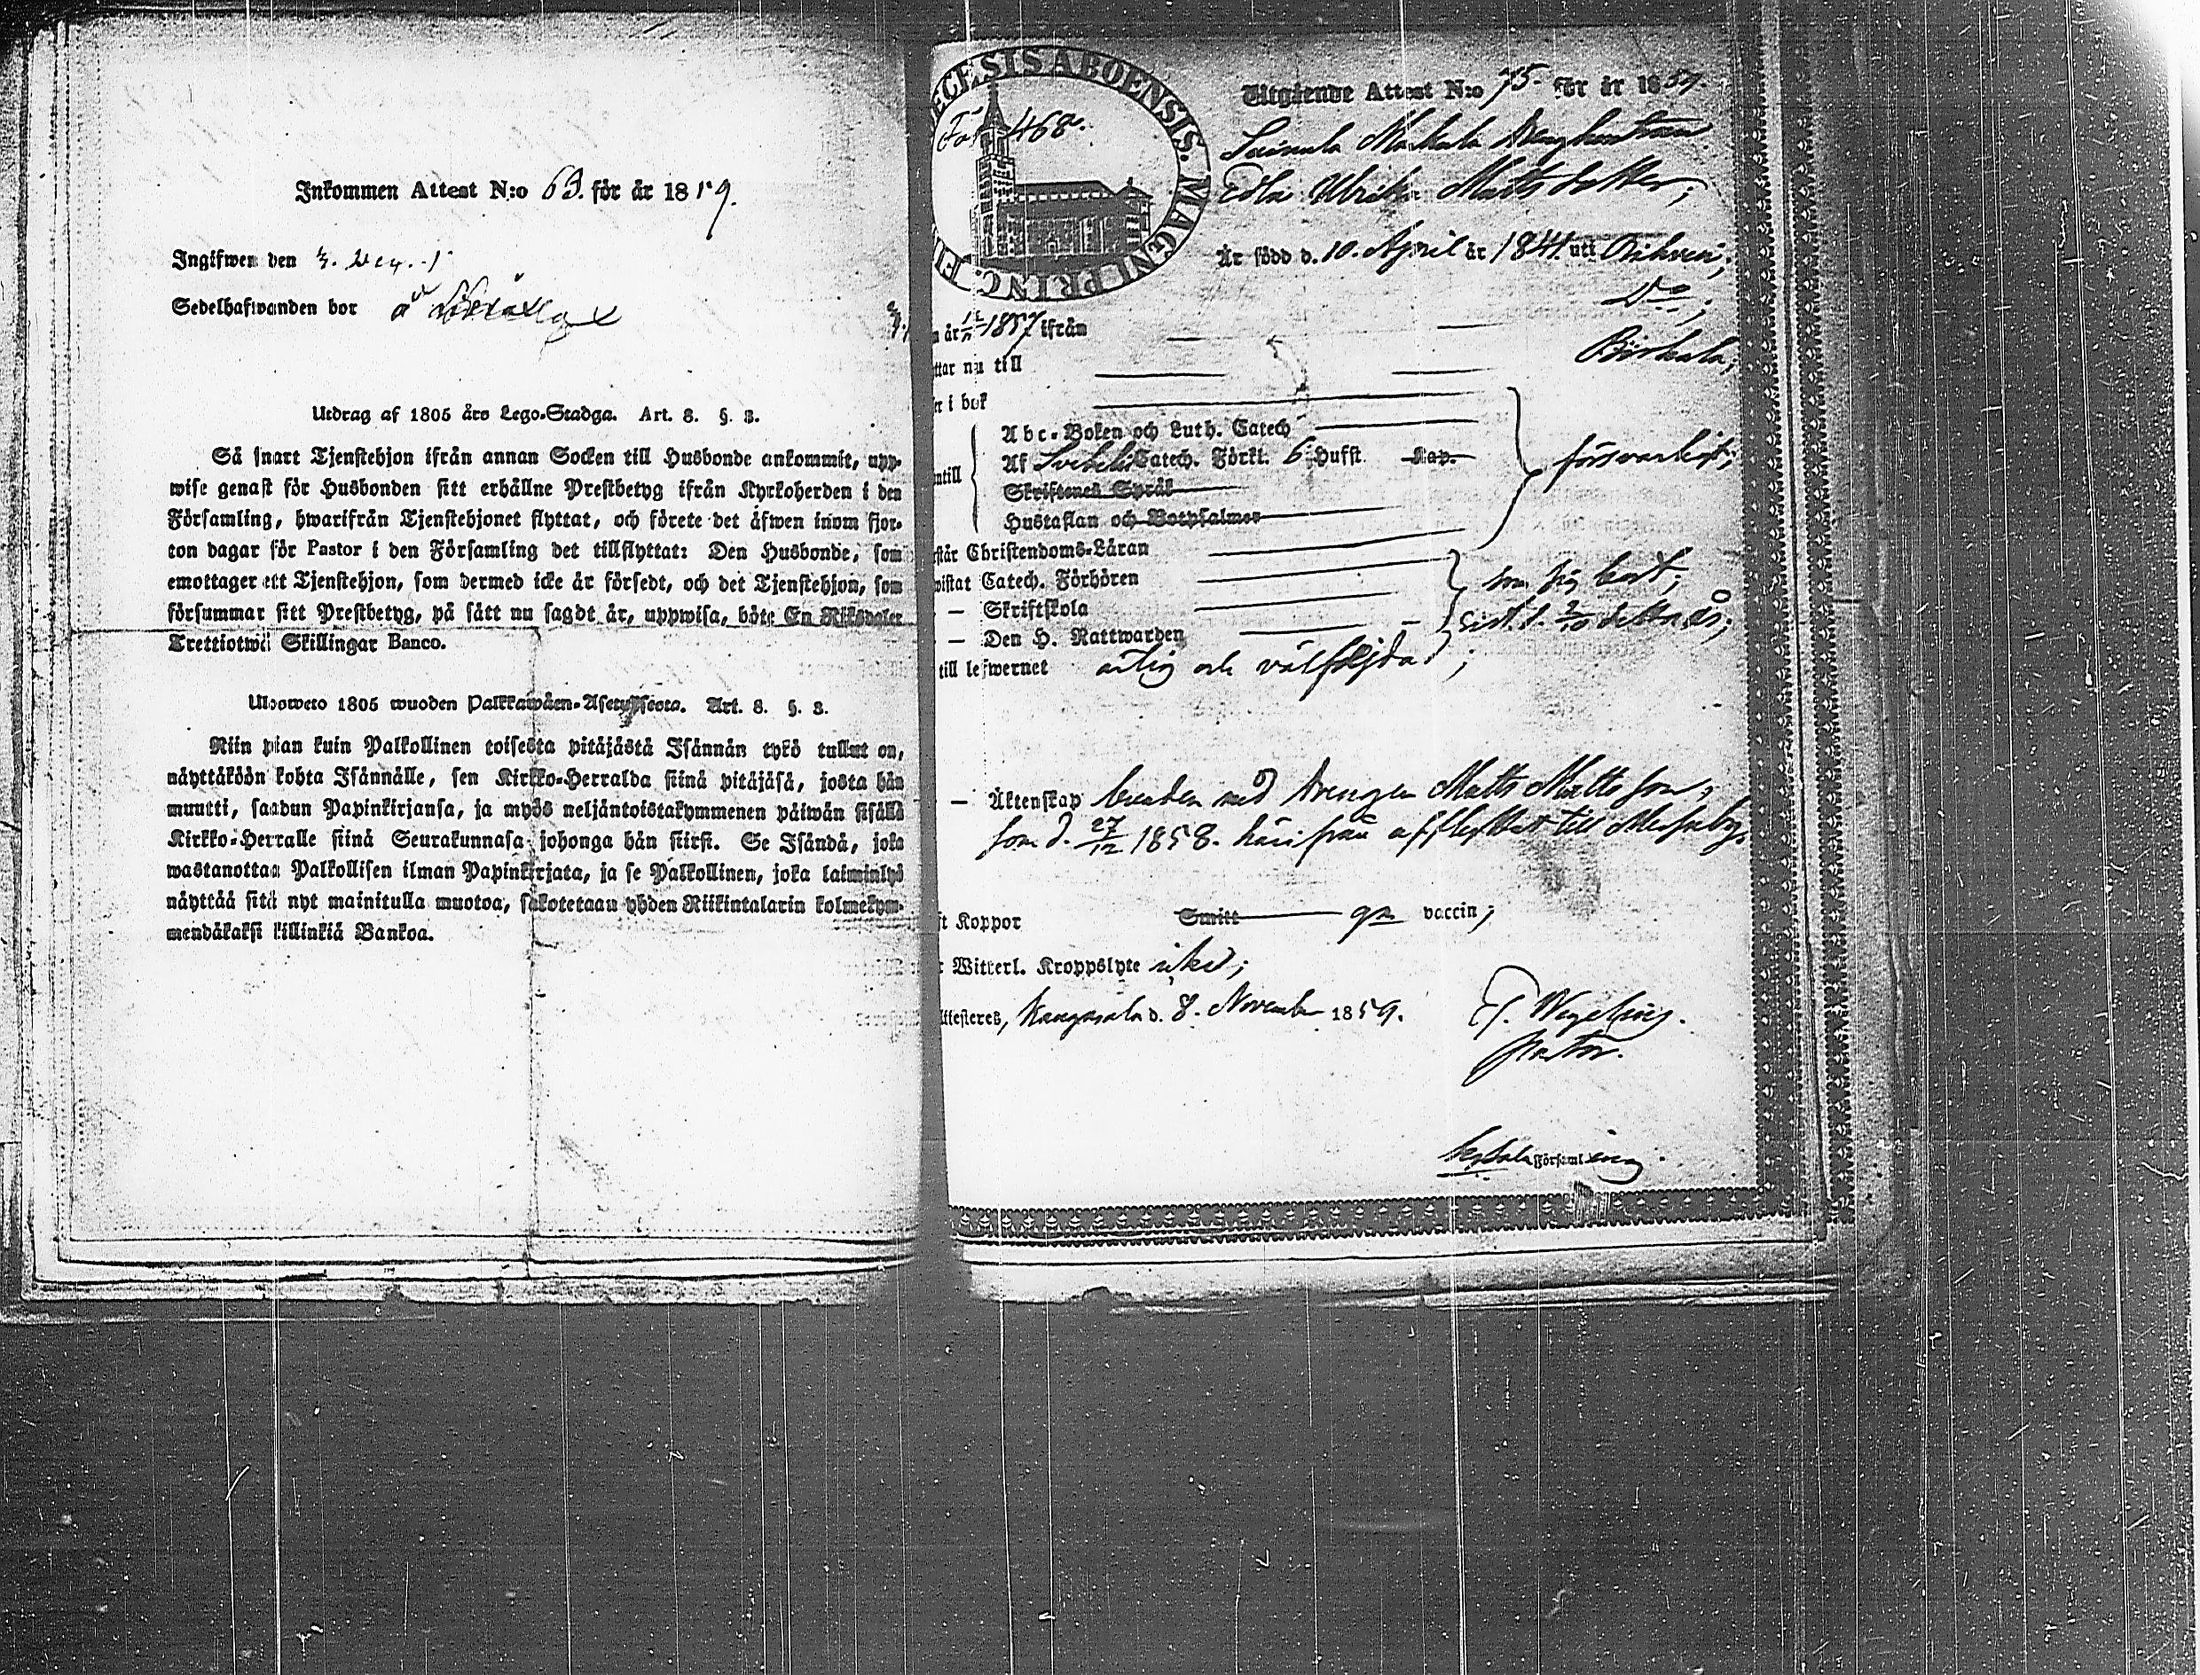 Inkommen Attest N:o 63. för år 1859.
Ingifwen den 3. Dec.
Sedelhafwanden bor å
Utdrag af 1805 års Lego-Stadga. Art. 8. §. 3.
Så snart Tjenstehjon ifrån annan Socken till Husbonde ankommit, upp-
wise genast för Husbonden sitt erhållne Prestbetyg ifrån Kyrkoherden i den
Församling, hwarifrån Tjenstehjonet flyttat, och förete det äfwen inom fjor-
ton dagar för Pastor i den Församling det tillflyttat: Den Husbonde, som
emottager ett Tjenstehjon, som dermed icke är försedt, och det Tjenstehjon, som
försummar sitt Prestbetyg, på sätt nu sagdt är, uppwisa, böte En Riksdaler
Trettiotwå Skillingar Banco.
Ulosweto 1805 wuoden Palkkawäen-Asetuksesta. Art. 8. §. 3.
Niin pian kuin Palkollinen toisesta pitäjästä Isännän tykö tullut on,
näyttäköön kohta Isännälle, sen Kirkko-Herralda siinä pitäjäsä, josta hän
muutti, saadun Papinkirjansa, ja myös neljäntoistakymmenen päiwän sisällä
Kirkko-Herralle siinä Seurakunnasa johonga hän siirsi. Se Isändä, joka
wastanottaa Palkollisen ilman Papinkirjata, ja se Palkollinen, joka laiminlyö
näyttää sitä nyt mainitulla muotoa, sakotetaan yhden Riikintalarin kolmekym-
mendäkaksi killinkiä Bankoa.
ECESIS ABOENSIS. MAGNI PRINC. FI
Fol. 468.
Utgående Attest N:o 75. för år 1859.
Suinula Markula Drenghustrun
Edla Ulrika Mattsdotter;
Är född d. 10. April år 1841. uti Birkkala;
D:o;
n år 1857 ifrån
ttar nu till Birkala;
er i bok
Abc-Boken och Luth. Catech
ntill Af Svebelii Catech. Förkl. 6 Hufst. Kap. försvarligt;
Skriftenes Språk
Hustaflan och Botpsalmer
rstår Christendoms-Läran
wistat Catech. Förhören
— Skriftskola
— Den H. Nattwarden sist. d. 2/10 detta år;
till lefwernet ärlig och välfrejdad;
— Äktenskap bunden med Drengen Matts Mattsson,
som d. 27/12 1858. härifrån afflyttat till Messuby.
ft Koppor Smitt ga vaccin;
r Witterl. Kroppslyte icke;
Attesteres, Kangasala d. 8. November 1859.
Wegelius.
Pastor.
Församling.